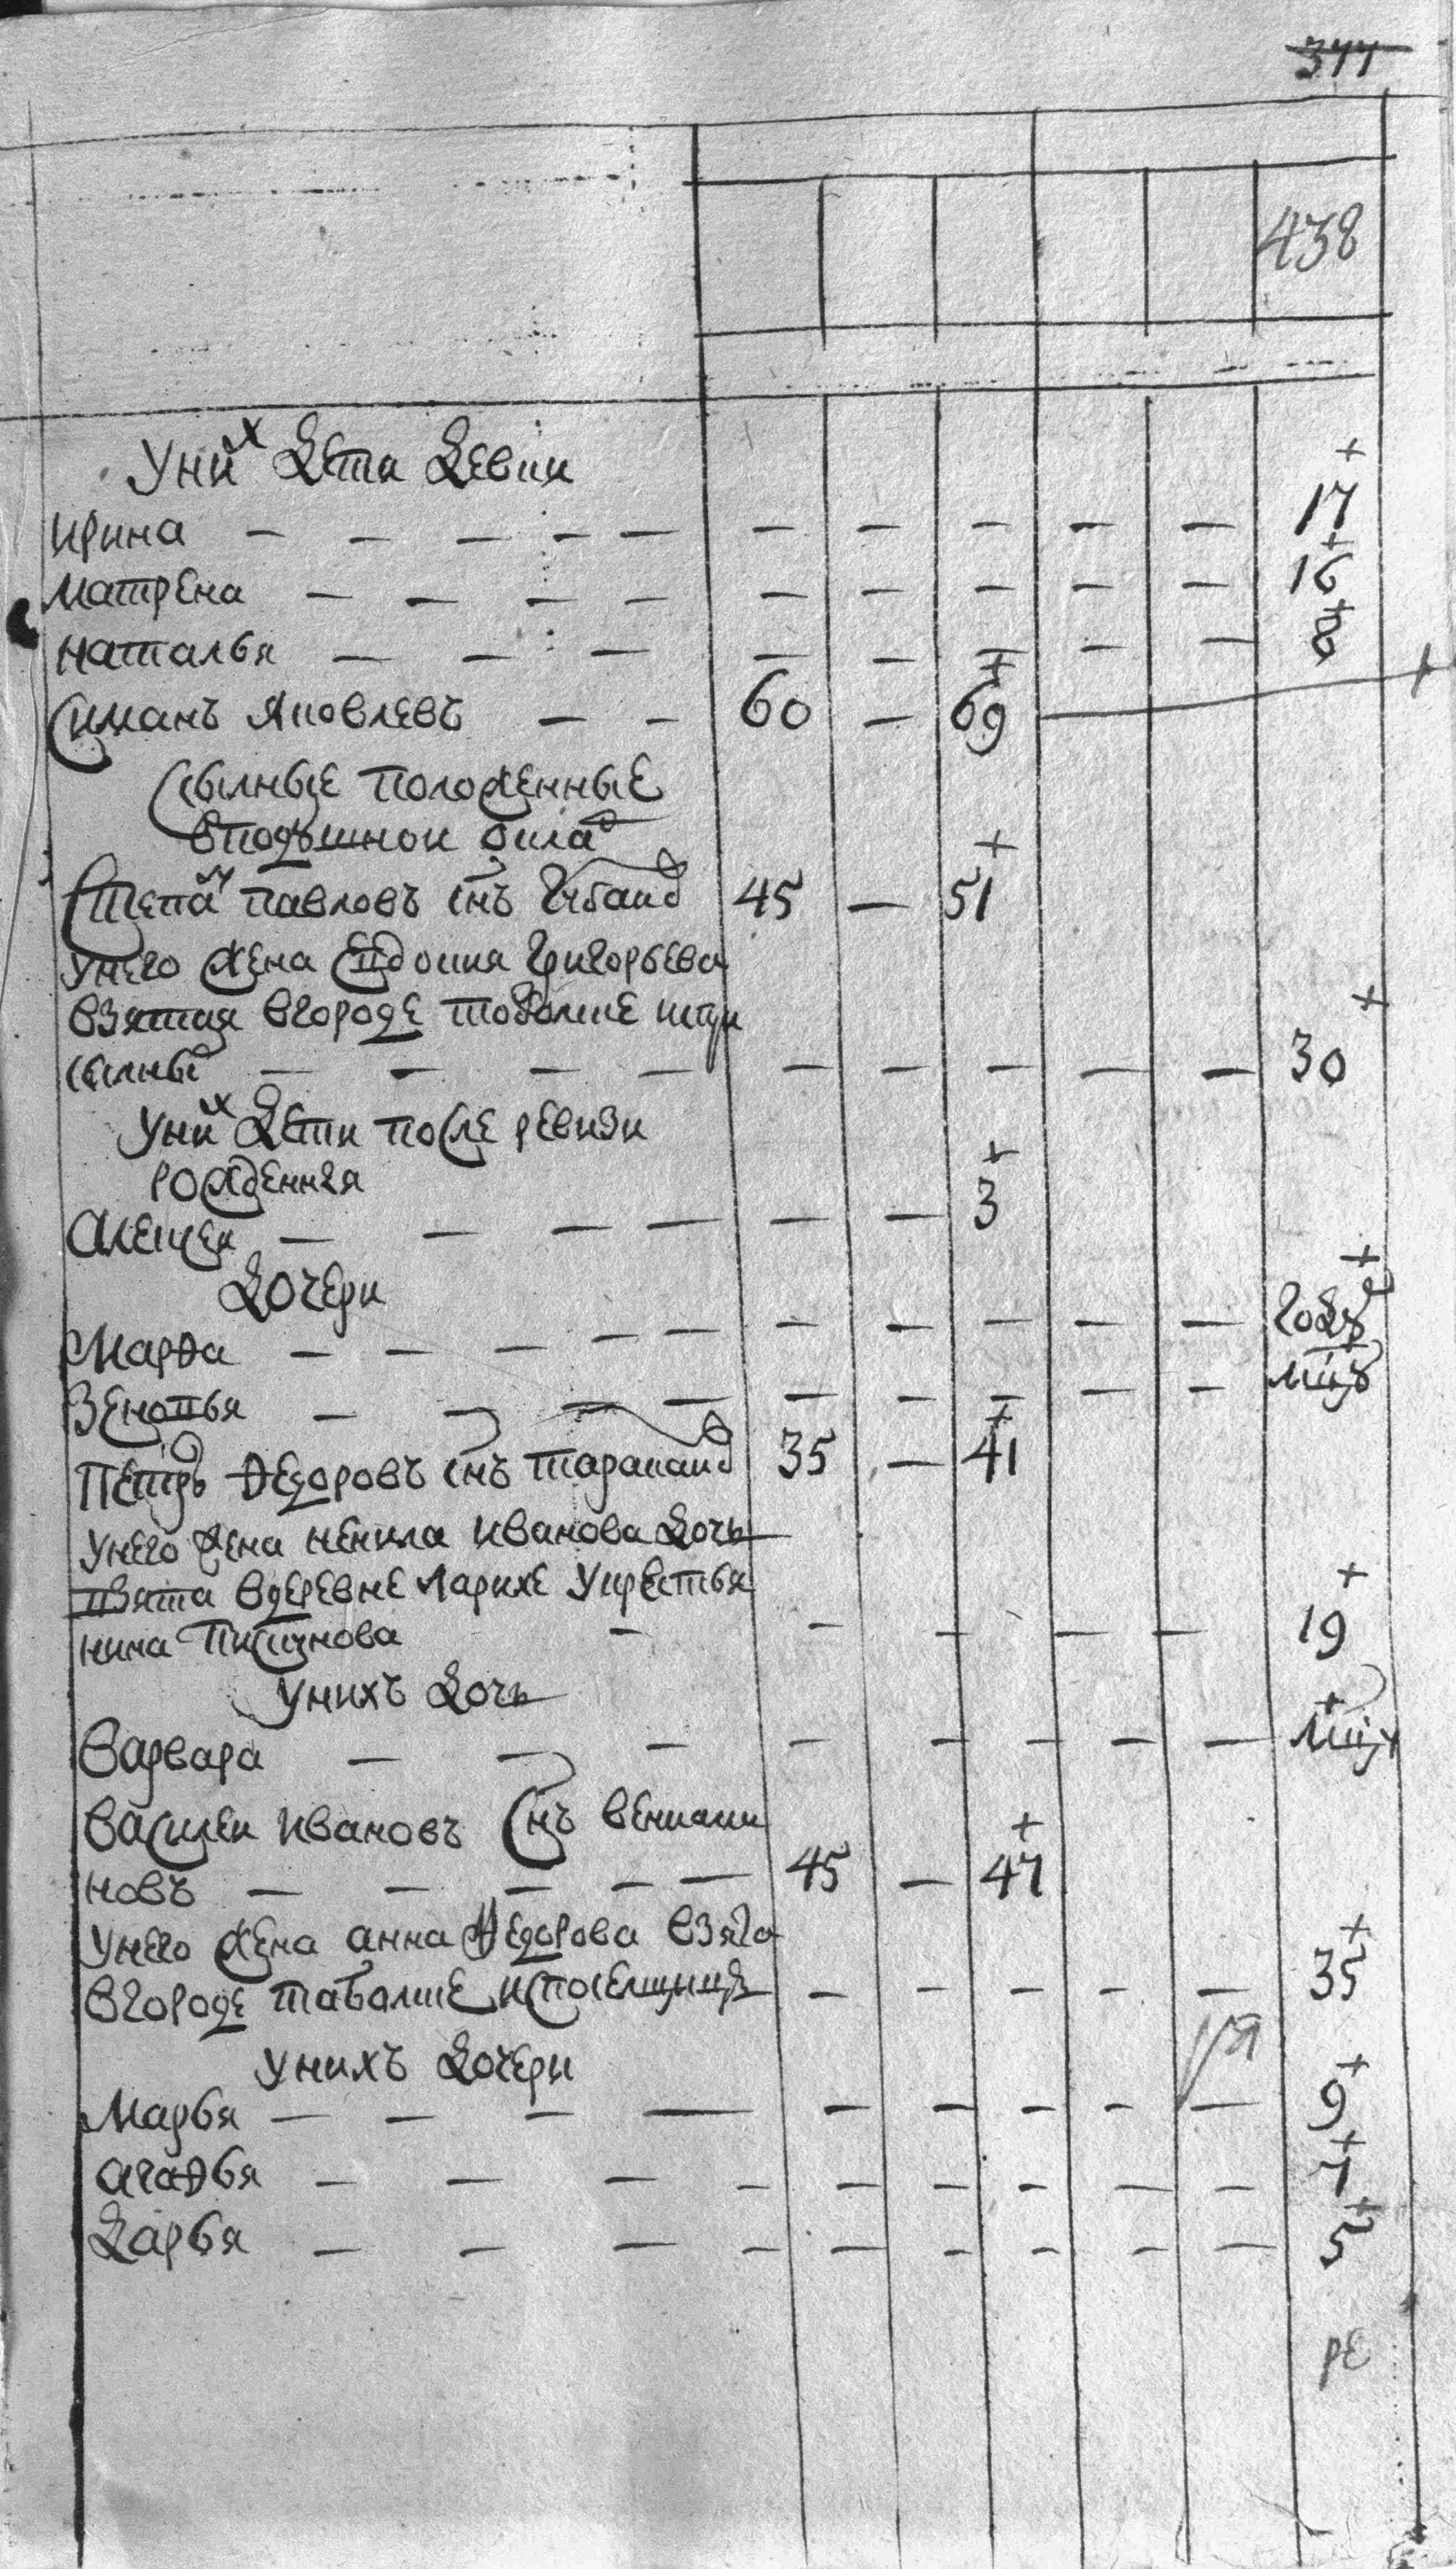 377
438
У них дети девки
Ирина — — — — — — — — — — 17
Матрена — — — — — — — — — 16
Наталья — — — — — — — — 8
Симанъ Яковлевъ — — 60 — 69
Сылные положенные
в подушнои окла
Степан Павловъ снъ 45 — 51
у него жена Евдокия Григорьева
взятая в городе Тобольске
сылных — — — — — — — — — 30
У них дети после ревизи
рожденныя
Алексеи — — — — — — 3
Дочери
Марфа — — — — — — — — — — году
Зеновья — — — — — — — — — мцъ
Петръ Федоровъ снъ 35 — 41
у него жена Ненила Иванова дочь
взята в деревне Ларихе у крестья
нина — — — — — 19
у нихъ дочь
Варвара — — — — — — — —
Василеи Ивановъ снъ Вениами
новъ — — — — — 45 — 47
у него жена Анна Федорова взята
в городе Таболске ис поселщицъ — — — — — 35
у нихъ дочери
Марья — — — — — — — — — 9
Агафья — — — — — — — — — 7
Дарья — — — — — — — — — 5
ре